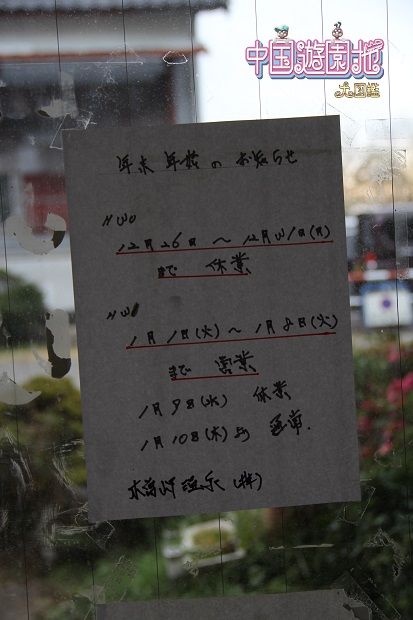 中国遊園地
大図鑑
年末年始のお知らせ
H30
12月26日 〜 12月31日(月)
まで 休業
H31
1月1日(火)〜1月8日(火)
まで 営業
1月9日(水) 休業
1月10日(木)
温泉(株)